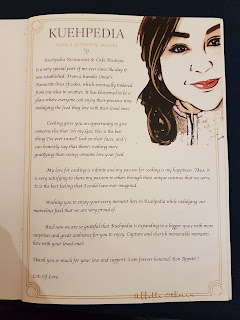 KUEHPEDIA
Kuehpedia Restaurant & Cake Boutique
is a very special part of me ever since the day it
was established. From a humble Omar's
Favourite tiers of cakes, which eventually linked
from one idea to another. It has blossomed to be a
place where everyone can enjoy their precious time
indulging the food they love with their loved ones.
Cooking gives you an opportunity to give
someone else that "oh my God, this is the best
thing I've ever tasted" look on their faces, and I
can honestly say that there's nothing more
gratifying than seeing someone love your food.
My love for cooking is infinite and my passion for cooking is my happiness. Thus, it
is very satisfying to share my passion to others through these unique cuisines that we serve.
It is the best feeling that I could have ever imagined.
Wishing you to enjoy your every moment here in Kuehpedia while indulging our
marvellous food that we are very proud of.
And now we are so grateful that Kuehpedia is expanding to a bigger space with more
surprises and great ambience for you to enjoy. Capture and cherish memorable moments
here with your loved ones!
Thank you so much for your love and support. I am forever honored. Bon Appetit!
Lots Of Love,